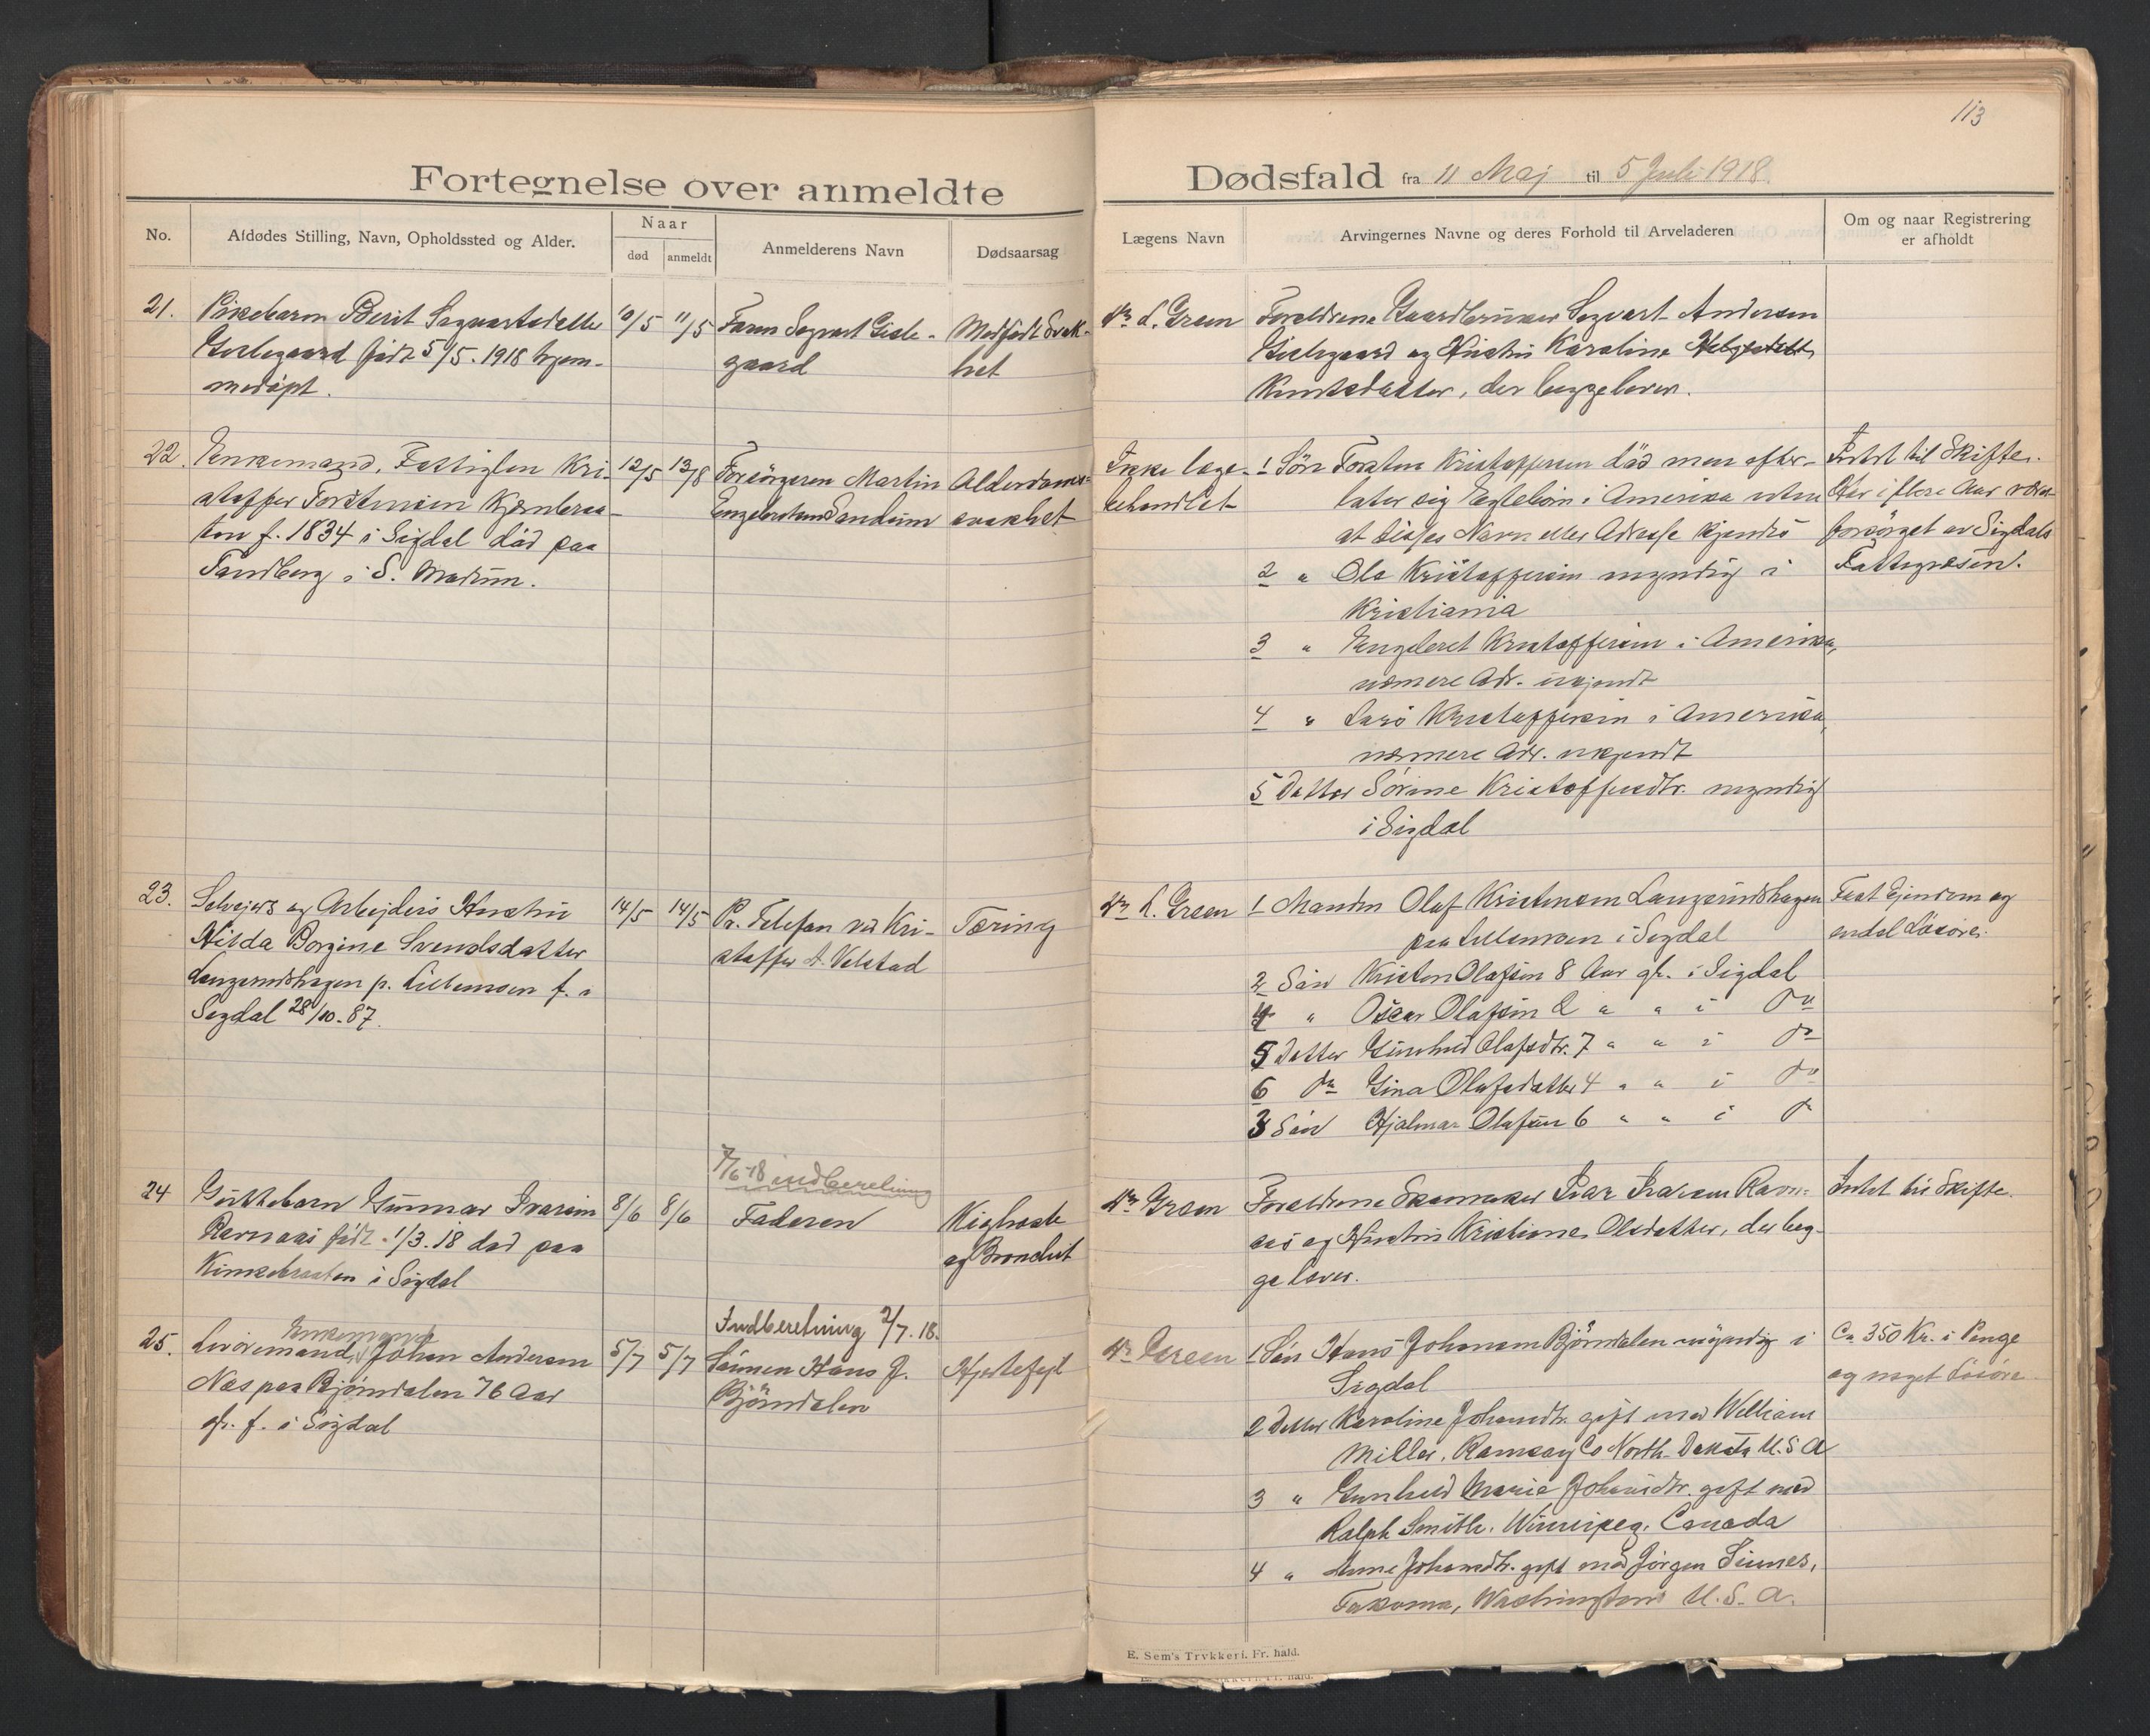 113
Fortegnelse over anmeldte
Dødsfald fra 11 Maj til 5 Juli 1918.
No.
Afdødes Stilling, Navn, Opholdssted og Alder.
Naar
død
anmeldt
Anmelderens Navn
Dødsaarsag
Lægens Navn
Arvingernes Navne og deres Forhold til Arveladeren
Om og naar Registrering
er afholdt
21.
Pikebarn Berit Sagvartsdatter
Gislegaard født 5/5. 1918 hjem-
medöpt.
10/5
11/5
Faren Sagvart Gisle-
gaard
Medfødt Svak-
het
Dr. L. Green
Forældrene Gaardbruker Sagvart Andersen
Gislegaard og Hustru Karoline
Knutsdatter, der begge lever.
22.
Enkemand, Fattiglem Kri-
stoffer Torstensen Kjærnbraa-
ten f. 1834 i Sigdal død paa
Tandberg i S. Modum.
12/5
13/8
Forsörgeren Martin
Engebretsen Sandum
Alderdoms-
svakhet
Ikke læge-
behandlet
1 Sön Torsten Kristoffersen död men efter-
later sig Egtebörn i Amerika uten
at disses Navn eller Adresse kjendes
2 " Ole Kristoffersen myndig i
Kristiania
3 " Engebret Kristoffersen i Amerika,
nærmere Adr. ukjendt
4 " Lars Kristoffersen i Amerika,
nærmere Adr. ukjendt
5 Datter Sörine Kristoffersdtr. myndig
i Sigdal
Intet til Skifte.
Har i flere Aar været
forsörget av Sigdals
Fattigvæsen.
23.
Selveiers og Arbeiders Hustru
Hilda Borgine Svendsdatter
Langerudshagen p. Lillemoen f. i
Sigdal 28/10-87.
14/5
14/5
Pr. Telefon ved Kri-
stoffer A. Velstad
Tæring
Dr. L. Green
1 Manden Olaf Kristensen Langerudshagen
paa Lillemoen i Sigdal
2 Sön Kristen Olafsen 8 Aar gl. i Sigdal
4 " Oscar Olafsen 2 " " i Do
5 Datter Gunhild Olafsdtr. 7 " " i Do
6 Do Gina Olafsdatter 4 " " i Do
3 Sön Hjalmar Olafsen 6 " " i Do
Fast Eiendom og
endel Lösöre.
24
Guttebarn Gunnar Ivarsen
Ravnaas født 1/3. 18 død paa
i Sigdal
8/6
8/6
7/6-18 indberetning
Faderen
Kighoste
og Bronchit
Dr. Green
Forældrene Skomaker Ivar Ivarsen Ravn-
aas og Hustru Kristiane Olsdatter, der beg-
ge lever.
Intet til Skifte.
25.
Enkemand
Livöremand, Johan Andersen
Næs paa Bjørndalen 76 Aar
gl. f. i Sigdal
5/7
5/7
Indberetning 2/7. 18.
Sönnen Hans J.
Bjørndalen
Hjertefejl
Dr. Green
1 Sön Hans Johansen Bjørndalen myndig i
Sigdal
2 Datter Karoline Johansdtr. gift med William
Miller. Ramsay Co North-Dakota U.S.A
3 " Gunhild Marie Johansdtr. gift med
Ralph Smith. Winnipeg. Canada
4 " Anne Johansdtr. gift med Jörgen
Takoma, Washington U.S.A.
Ca 350 Kr. i Penge
og noget Lösöre
E. Sem's Trykkeri, Fr. hald.